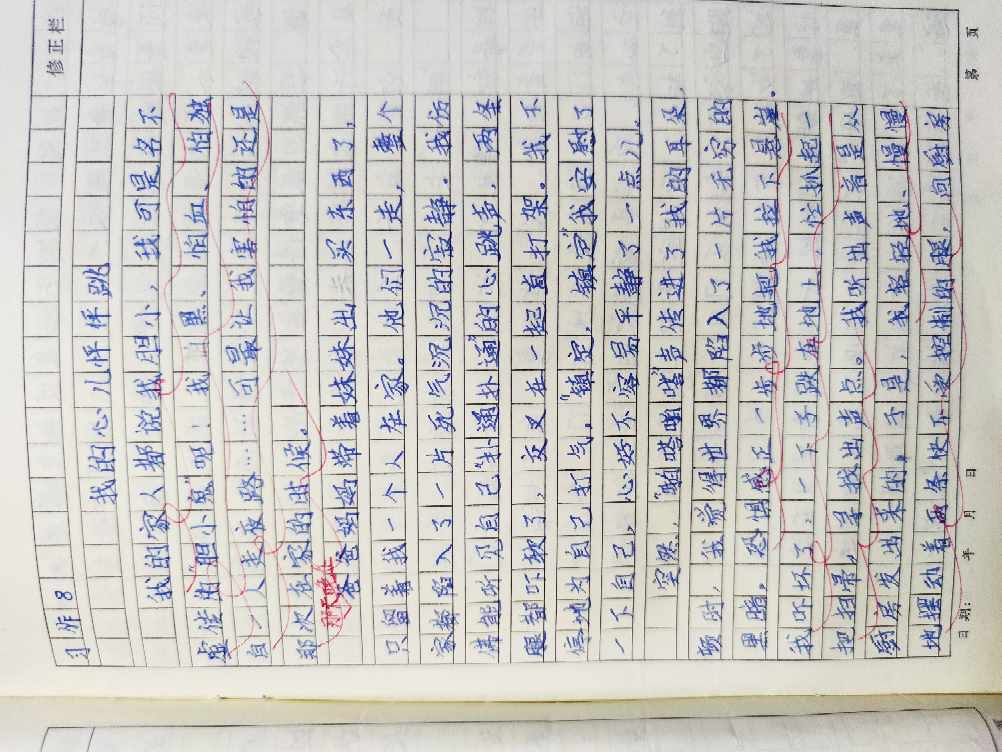 习作8
修正栏
我的心儿怦怦跳
我的家人都说我胆小，我可是名不
虚传的“胆小鬼”吧！我黑、怕血、怕独
自一人走夜路……可最让我害怕的还是
那次在家的时候。
那天晚上爸爸妈妈带着妹妹出买东西了，
只留着我一个人在家。他们一走，整个
家都陷入了一片死气沉沉的寂静。我仿
佛能听见自己“扑通扑通”的心跳声，两条
腿都吓软了，交叉在一起直打架。我不
停地为自己打气。“镇定，镇定”我安慰了
一下自己，心好不容易平静了一点儿。
突然，“啪嗒啪嗒”声传进了我的耳朵
顿时，我觉得世界都陷入了一片无穷的
黑暗。恐惧感正一步步地把我拉下悬崖。
我吓坏了，一下子跌在地上，忙抓起一
把扫帚，寻找出声点。我听出声音是从
厨房发出来的。于是，我轻轻地、慢慢
地摆动着两条使不受控制的腿，向厨房
日期： 年 月 日
第 页